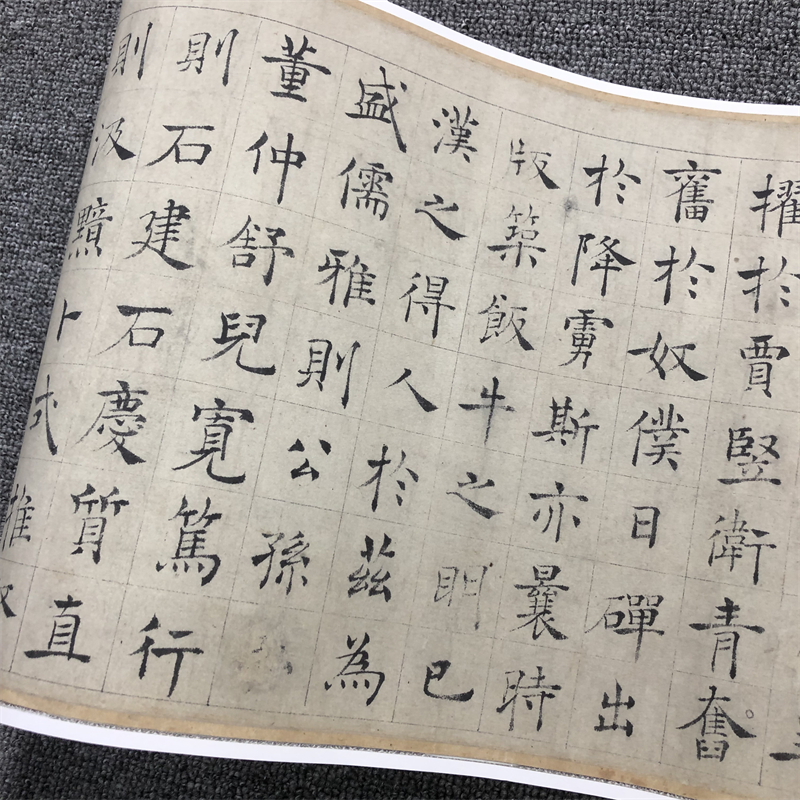 擢於賈豎衛青奮
奮於奴僕日磾出
於降虜斯亦曩時
版築飯牛之明已
漢之得人於茲為
盛儒雅則公孫弘
董仲舒兒寬篤行
則石建石慶質直
則汲黯卜式推